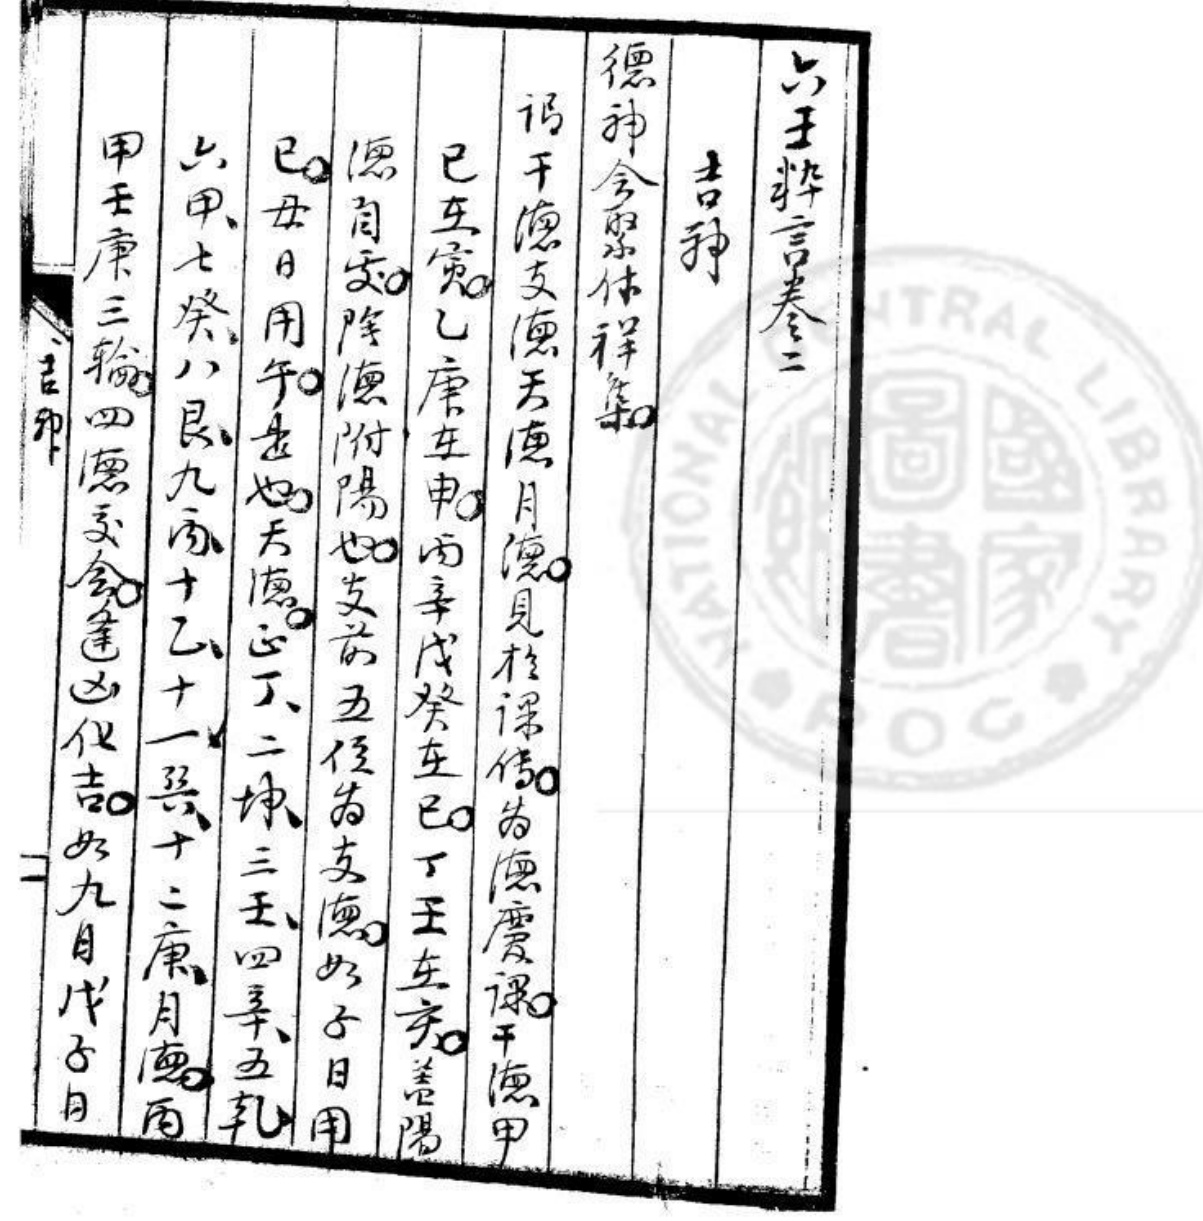 六壬粹言卷二
吉神
德神会聚休祥集。
謂干德支德天德月德。見於课傳。为德慶課。干德甲
己在寅。乙庚在申。丙辛戊癸在巳。丁壬在亥。盖陽
德自處。陰德附陽也。支前五位为支德。如子日用
巳。丑日用午是也。天德。正丁、二坤、三壬、四辛、五乾、
六甲、七癸、八艮、九丙、十乙、十一巽、十二庚、月德。丙
甲壬庚三輪。四德交会。逢凶化吉。如九月戊子日
吉神
二
NATIONAL CENTRAL LIBRARY
ROC
國家圖書館